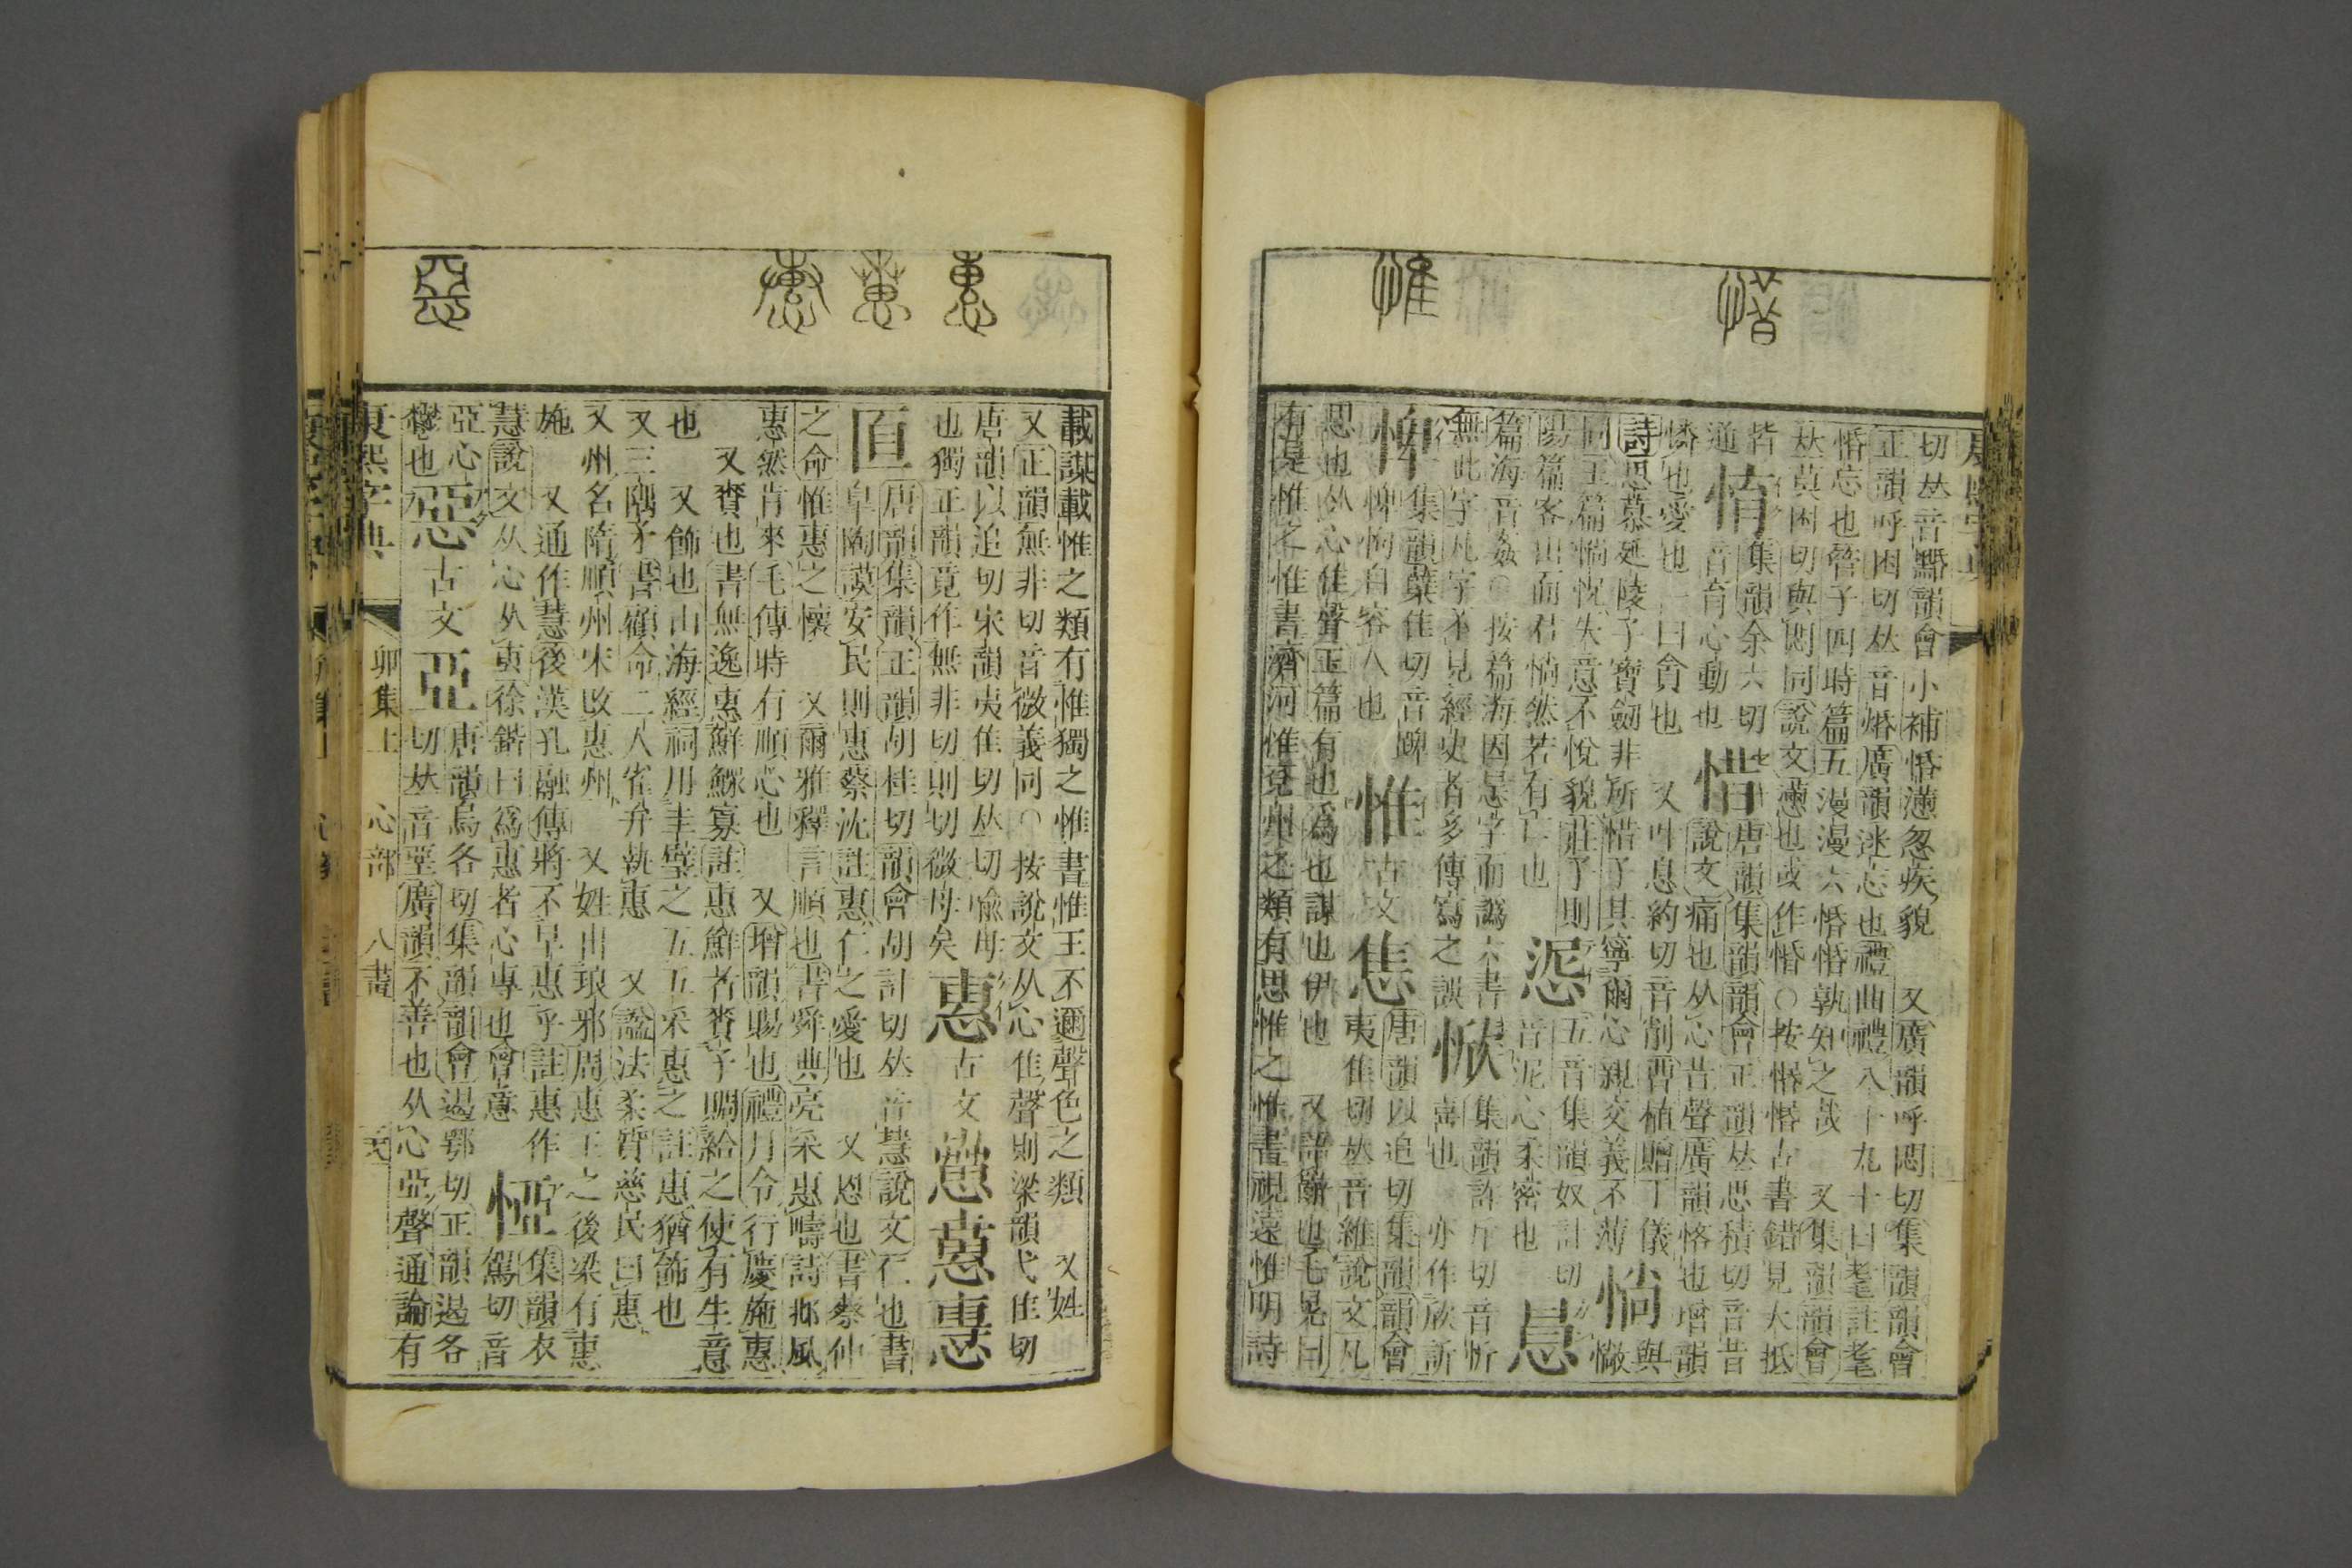 切𠀤音黁韻會小補惛懑忽疾貌　又廣韻呼悶切集韻韻會
正韻呼困切𠀤音惛廣韻迷忘也禮曲禮八十九十曰耄註耄
惛忘也管子四時篇五漫漫六惛惛孰知之哉　又集韻韻會
𠀤莫困切與悶同說文懑也或作惛○按惛惽古書錯見大抵
皆
通
㥔
集韻余六切
音育心動也
惜
唐韻集韻韻會正韻𠀤思積切音昔
說文痛也从心昔聲廣韻恡也增韻
憐也愛也一曰貪也　又叶息約切音削曹植贈丁儀
詩思慕延陵子寶劒非所惜子其寧爾心親交義不薄
惝
與
㦂
同玉篇惝怳失意不悅貌莊子則
陽篇客出而君惝然若有亡也
惉
五音集韻奴計切
音泥心柔密也
篇海音姦○按篇海因㠯字而譌六書
無此字凡字不見經史者多傳寫之誤
惞
集韻許斤切音忻
喜也　亦作欣訢
㥏
集韻蘗佳切音
惟
古文
唐韻以追切集韻韻會
夷隹切𠀤音維說文凡
思也从心隹聲玉篇有也爲也謀也伊也　又語辭也毛晃曰
有是惟之惟書濟河惟兗州之類有思惟之惟書視遠惟明詩
惜
惟
載謀載惟之類有惟獨之惟書惟王不邇聲色之類　又姓
又正韻無非切音微義同○按說文从心隹聲則梁韻弋隹切
唐韻以追切宋韻夷隹切𠀤切喩母
也獨正韻竟作無非切則切微母矣
惠
古文
唐韻集韻正韻胡桂切韻會胡計切𠀤音慧說文仁也書
皐陶謨安民則惠蔡沈註惠仁之愛也　又恩也書蔡仲
之命惟惠之懷　又爾雅釋言順也書舜典亮采惠疇詩邶風
惠然肯來毛傳時有順心也　又增韻賜也禮月令行慶施惠
又賚也書無逸惠鮮鰥寡註惠鮮者賚予賙給之使有生意
也　又飾也山海經祠用圭璧之五五采惠之註惠猶飾也
又三隅矛書顧命二人雀弁執惠　又諡法柔質慈民曰惠
又州名隋順州宋改惠州　又姓出琅邪周惠王之後梁有惠
施　又通作慧後漢孔融傳將不早惠乎註惠作
慧說文从心从叀徐鍇曰爲惠者心專也會意
㤩
集韻衣
駕切音
亞心
鬱也
惡
古文
亞
唐韻烏各切集韻韻會遏鄂切正韻遏各
切𠀤音堊廣韻不善也从心亞聲通論有
康熙字典
卯集上
心部
八畫